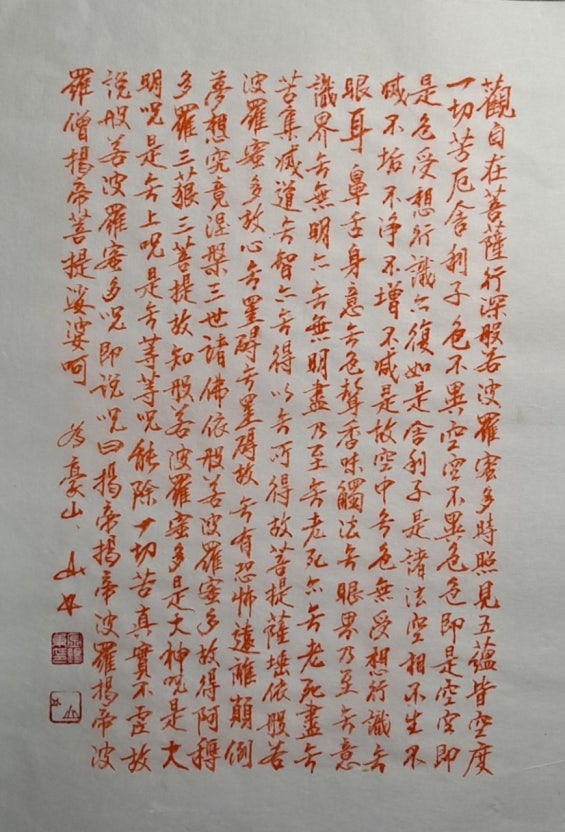 觀自在菩薩行深般若波羅蜜多時照見五蘊皆空度
一切苦厄舍利子色不異空空不異色色即是空空即
是色受想行識亦復如是舍利子是諸法空相不生不
滅不垢不净不增不减是故空中无色無受想行識无
眼耳鼻舌身意无色聲香味觸法无眼界乃至无意
識界无無明亦无無明盡乃至无老死亦无老死盡无
苦集滅道无智亦无得以无所得故菩提薩埵依般若
波羅蜜多故心无罣碍无罣碍故无有恐怖遠離顛倒
夢想究竟涅槃三世諸佛依般若波羅蜜多故得阿耨
多羅三藐三菩提故知般若波羅蜜多是大神呪是大
明呪是无上呪是无等等呪能除一切苦真實不虛故
說般若波羅蜜多呪即說呪曰揭帝揭帝波羅揭帝波
羅僧揭帝菩提娑婆呵
豪山